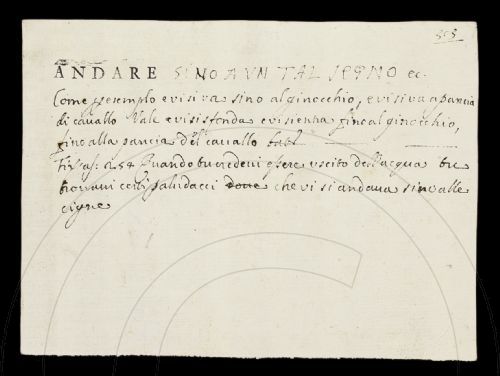 303
ANDARE SINO A VN TAL SEGNO ec.
Come p esemplo e vi si va sino al ginocchio, e vi si va a pancia
di cavallo Vale e vi si sfonda e vi si entra fino al ginocchio,
fino alla pancia del cavallo
Fir. As. 254 Quando tu credevi essere uscito dell'acqua tu
trovavi certi paludacci dove che vi si andava sino alle
cigne